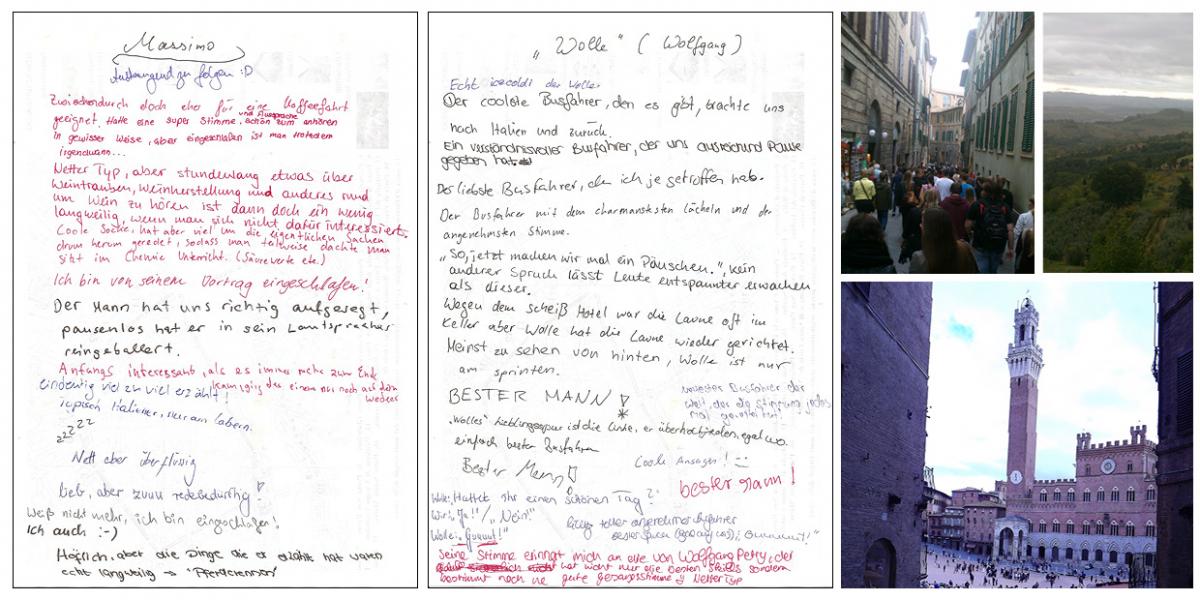 Massimo
Anstrengend zu folgen :D
Zwischendurch doch eher für eine Kaffeefahrt
geeignet. Hatte eine super Stimme, und Aussprache schön zum anhören
in gewisser Weise, aber eingeschlafen ist man trotzdem
irgendwann...
Netter Typ, aber stundenlang etwas über
Weintrauben, Weinherstellung und anderes rund
um Wein zu hören ist dann doch ein wenig
langweilig, wenn man sich nicht dafür interessiert.
Coole Socke, hat aber viel um die eigentlichen Sachen
drum herum geredet, sodass man teilweise dachte man
sitzt im Chemie Unterricht. (Säurewerte etc.)
Ich bin von seinem Vortrag eingeschlafen!
Der Mann hat uns richtig aufgeregt,
pausenlos hat er in sein Lautsprecher
reingeballert.
Anfangs interessant, als es immer mehr zum Ende
kam, ging das einem nur noch auf den
Wecker
eindeutig viel zu viel erzählt!
Typisch Italiener, nur am labern.
zzzzz
Nett aber überflüssig
Lieb, aber zuuu redebedürftig!
Weiß nicht mehr, ich bin eingeschlafen!
Ich auch :-)
Höflich, aber die Dinge die er erzählte hat waren
echt langweilig → "Pferderennen"
„Wolle" (Wolfgang)
Echt icecoldt der Wolle
Der coolste Busfahrer, den es gibt, brachte uns
nach Italien und zurück.
Ein verständnisvoller Busfahrer, der uns ausreichend Pause
gegeben hat
Der liebste Busfahrer, den ich je getroffen hab.
Der Busfahrer mit dem charmantesten Lächeln und der
angenehmsten Stimme.
„So, jetzt machen wir mal ein Päuschen.", kein
anderer Spruch lässt Leute entspannter erwachen
als dieser.
Wegen dem scheiß Hotel war die Laune oft im
Keller aber Wolle hat die Laune wieder gerichtet.
Meinst zu sehen von hinten, Wolle ist nur
am sprinten.
BESTER MANN!
Busfahrer der
Welt, der die Stimmung jedes
mal
„Wolles" Lieblingsspur ist die Linke, er überholt jeden, egal wo.
einfach bester Busfahrer
Coole Ansagen! :-)
Bester Mann!
bester Mann!
Wolle: Hattet ihr einen schönen Tag?
Wir: „Ja!!"/„Nein!"
Wolle: „Guuut!"
toller angenehmer Busfahrer
Seine Stimme erinnert mich an die von Wolfgang Petry, der
hat wohl nur die besten Skills sondern
bestimmt noch ne gute Gesangsstimme :) Netter Typ